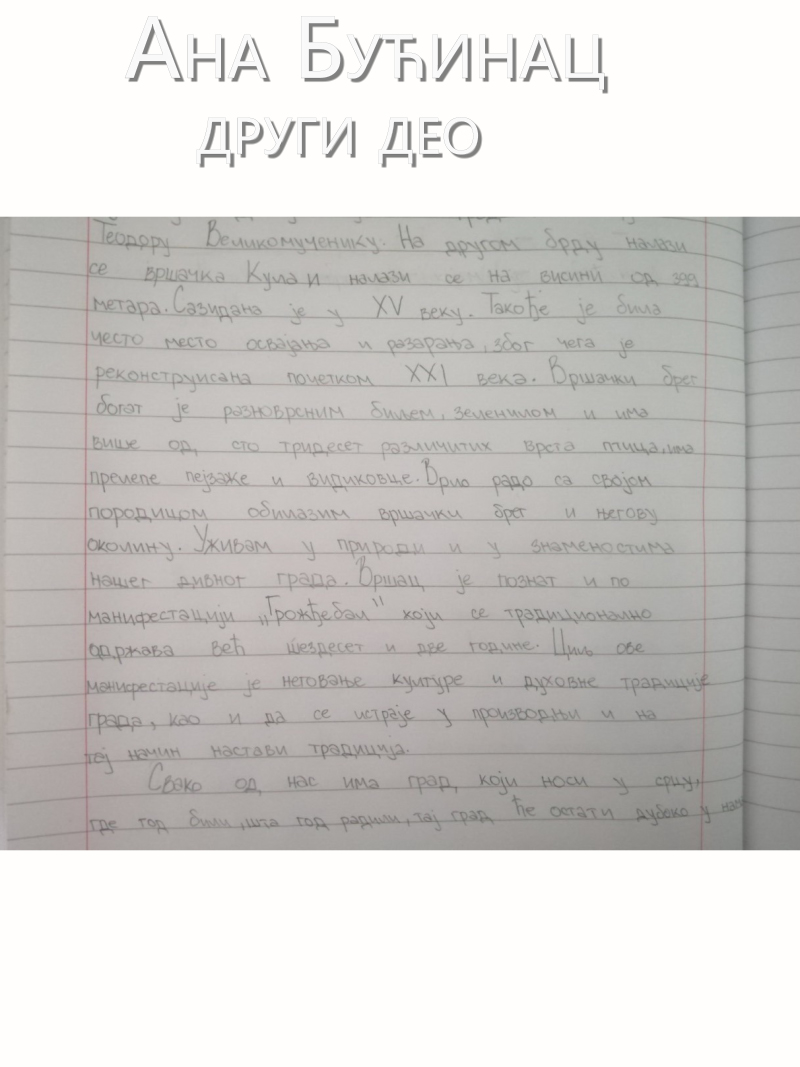 Ана Бућинац
други део
Теодору Великомученику. На другом брду налази
се вршачка Кула и налази се на висини од 399
метара. Сазидана је у XV веку. Такође је била
често место освајања и разарања, због чега је
реконструисана почетком XXI века. Вршачки брег
богат је разноврсним биљем, зеленилом и има
више од, сто тридесет различитих врста птица, има
прелепе пејзаже и видиковце. Врло радо са својом
породицом обилазим вршачки брег и његову
околину. Уживам у природи и у знаменостима
нашег дивног града. Вршац је познат и по
манифестацији „Грожђебал" који се традиционално
одржава већ шездесет и две године. Циљ ове
манифестације је неговање културе и духовне традиције
града, као и да се истраје у производњи и на
тај начин настави традиција.
Свако од нас има град, који носи у срцу,
где год били, шта год радили, тај град ће остати дубоко у